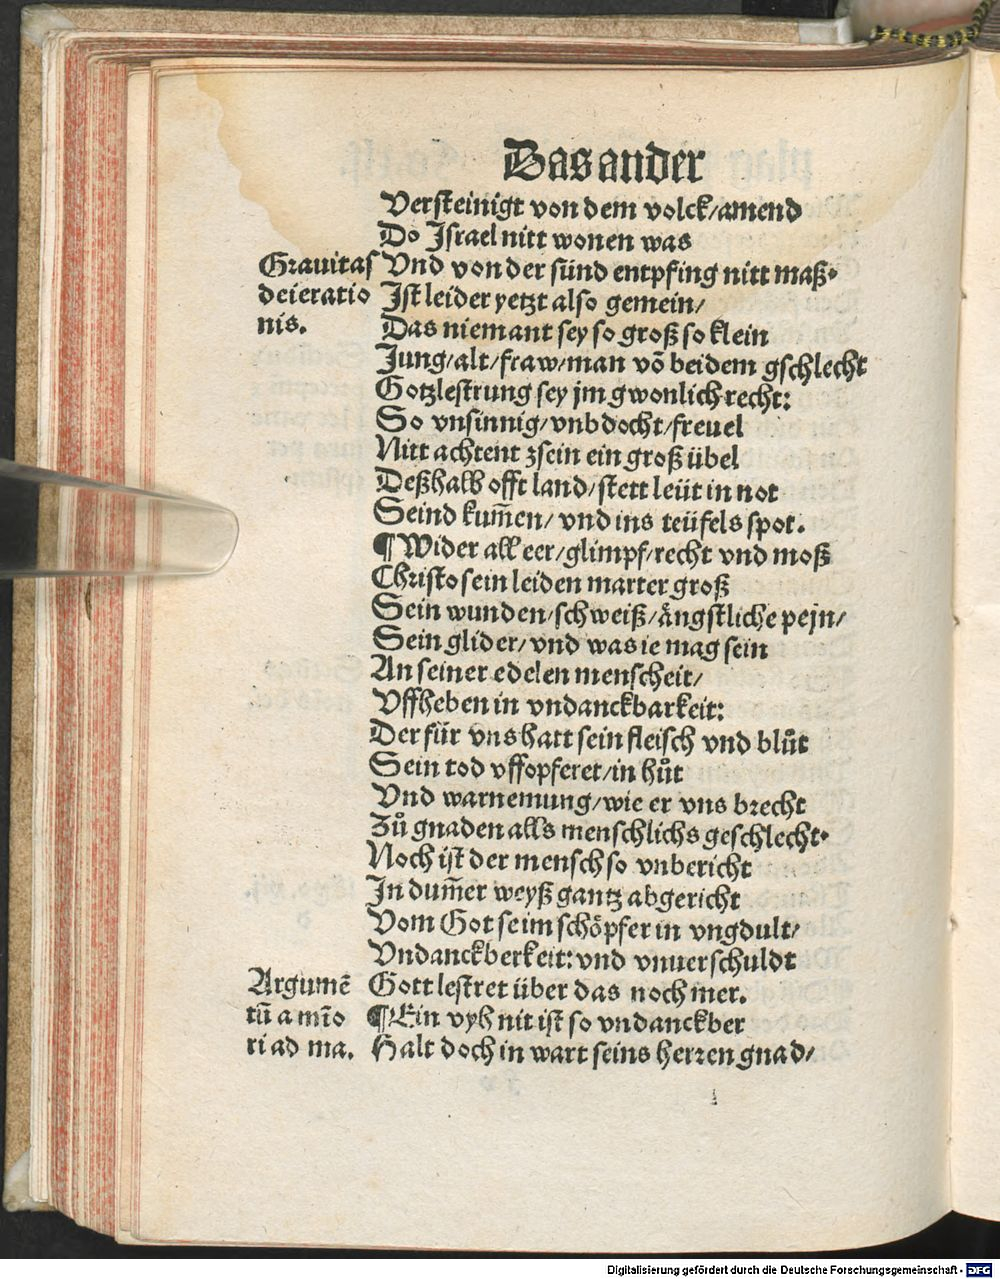 Das ander
Versteinigt von dem volck/amend
Do Israel nitt wonen was
Grauitas Vnd von der sünd entpfing nitt maß.
deieratio Ist leider yetzt also gemein/
nis. Das niemant sey so groß so klein
Jung/alt/fraw/man võ beidem gschlecht
Gotzlestrung sey jm gwonlich recht:
So vnsinnig/vnbdocht/freuel
Nitt achtent zsein ein groß übel
Deßhalb offt land/stett leüt in not
Seind kum̃en/ vnd ins teüfels spot.
¶ Wider all eer/glimpf/recht vnd moß
Christo sein leiden marter groß
Sein wunden/schweiß/ängstliche pejn/
Sein glider/vnd was ie mag sein
An seiner edelen menscheit/
Vffheben in vndanckbarkeit:
Der für vns hatt sein fleisch vnd blůt
Sein tod vffopferet/in hůt
Vnd warnemung/wie er vns brecht
Zů gnaden alls menschlichs geschlecht.
Noch ist der mensch so vnbericht
In dum̃er weyß gantz abgericht
Vom Got seim schöpfer in vngdult/
Vndanckberkeit: vnd vnuerschuldt
Argumẽ Gott lestret über das noch mer.
tũ a mĩo ¶ Ein vyh nit ist so vndanckber
ri ad ma. Halt doch in wart seins herren gnad/
Digitalisierung gefördert durch die Deutsche Forschungsgemeinschaft - DFG